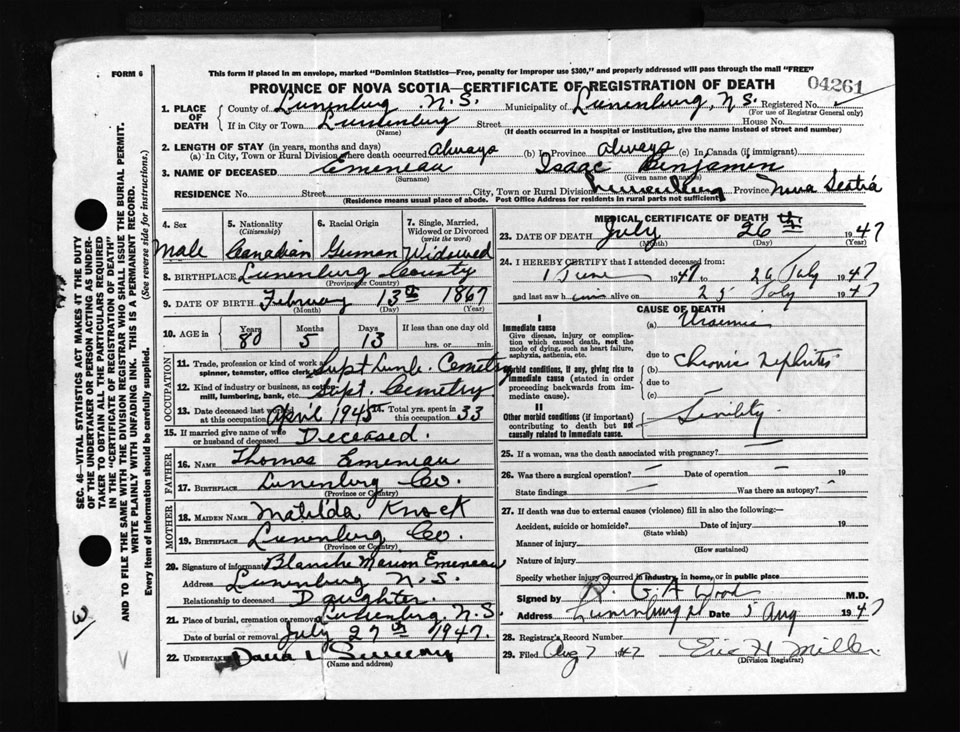 FORM 6
This form if placed in an envelope, marked "Dominion Statistics—Free, penalty for improper use $300," and properly addressed will pass through the mail "FREE"
PROVINCE OF NOVA SCOTIA—CERTIFICATE OF REGISTRATION OF DEATH
04261
1. PLACE OF DEATH
County of Lunenburg N.S. Municipality of Lunenburg, N.S. Registered No.
(For use of Registrar General only)
If in City or Town Lunenburg Street House No.
(Name) (If death occurred in a hospital or institution, give the name instead of street and number)
2. LENGTH OF STAY (in years, months and days)
(a) In City, Town or Rural Division where death occurred Always (b) In Province Always (c) In Canada (if immigrant)
3. NAME OF DECEASED Emeneau Isaac Benjamin
(Surname) (Given name or names)
RESIDENCE No. Street City, Town or Rural Division Lunenburg Province Nova Scotia
(Residence means usual place of abode. Post Office Address for residents in rural parts not sufficient)
4. Sex
Male
5. Nationality
(Citizenship)
Canadian
6. Racial Origin
German
7. Single, Married, Widowed or Divorced
(write the word)
Widowed
8. BIRTHPLACE Lunenburg County
(Province or Country)
9. DATE OF BIRTH February 13th 1867
(Month) (Day) (Year)
10. AGE in
Years Months Days If less than one day old
80 5 13 hrs. or min.
OCCUPATION
11. Trade, profession or kind of work as spinner, teamster, office clerk, Supt Lun'b. Cemetry
12. Kind of industry or business, as cotton-mill, lumbering, bank, etc. Supt. Cemetry
13. Date deceased last worked at this occupation April 1945 Total yrs. spent in this occupation 33
15. If married give name of wife or husband of deceased Deceased.
FATHER
16. NAME Thomas Emeneau
17. BIRTHPLACE Lunenburg Co.
(Province or Country)
MOTHER
18. MAIDEN NAME Matilda Knock
19. BIRTHPLACE Lunenburg Co.
(Province or Country)
20. Signature of informant Blanche Marion Emeneau
Address Lunenburg N.S.
Relationship to deceased Daughter
21. Place of burial, cremation or removal Lunenburg, N.S.
Date of burial or removal July 27th 1947.
22. UNDERTAKER
(Name and address)
MEDICAL CERTIFICATE OF DEATH
23. DATE OF DEATH July 26th 1947
(Month) (Day) (Year)
24. I HEREBY CERTIFY that I attended deceased from:
1 June 1947 to 26 July 1947
and last saw him alive on 25 July 1947
CAUSE OF DEATH
I
Immediate cause
Give disease, injury or complication which caused death, not the mode of dying, such as heart failure, asphyxia, asthenia, etc.
(a) Uraemia
due to
Morbid conditions, if any, giving rise to immediate cause (stated in order proceeding backwards from immediate cause).
(b) Chronic Nephritis
due to
(c)
II
Other morbid conditions (if important) contributing to death but not causally related to immediate cause.
Senility
25. If a woman, was the death associated with pregnancy?
26. Was there a surgical operation? — Date of operation — 19
State findings — Was there an autopsy? -
27. If death was due to external causes (violence) fill in also the following:—
Accident, suicide or homicide? Date of injury 19
(State which)
Manner of injury
(How sustained)
Nature of injury
Specify whether injury occurred in industry, in home, or in public place
Signed by R. G. A Wood M.D.
Address Lunenburg Date 5 Aug 1947
28. Registrar's Record Number
29. Filed Aug 7 1947 Eric H Miller
(Division Registrar)
SEC. 46—VITAL STATISTICS ACT MAKES IT THE DUTY
OF THE UNDERTAKER OR PERSON ACTING AS UNDER-
TAKER TO OBTAIN ALL THE PARTICULARS REQUIRED
IN THE "CERTIFICATE OF REGISTRATION OF DEATH"
AND TO FILE THE SAME WITH THE DIVISION REGISTRAR WHO SHALL ISSUE THE BURIAL PERMIT.
WRITE PLAINLY WITH UNFADING INK. THIS IS A PERMANENT RECORD.
Every item of information should be carefully supplied. (See reverse side for instructions.)